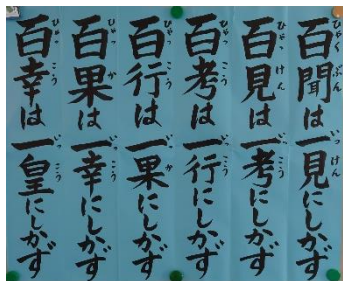 百聞は一見にしかず
百見は一考にしかず
百考は一行にしかず
百行は一果にしかず
百果は一幸にしかず
百幸は一皇にしかず